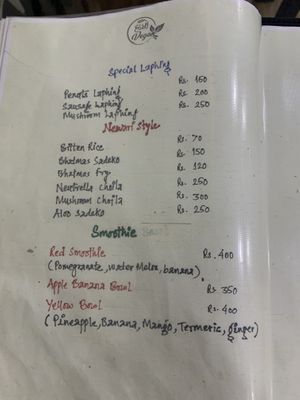 Still Vegan
Special Laphing
Peneris Laphing Rs. 150
Sausage Laphing Rs. 200
Mushroom Laphing Rs. 250
Newari Style
Britten Rice Rs. 70
Bhatmas Sadeko Rs. 150
Bhatmas Fry Rs. 120
Nutrella Choila Rs. 250
Mushroom Choila Rs. 300
Aloo Sadeko Rs. 250
Smoothie Bowl
Red Smoothie Rs. 400
(Pomegranate, water Melon, banana)
Apple Banana Bowl Rs. 350
Yellow Bowl Rs. 400
(Pineapple, Banana, Mango, Termeric, ginger)